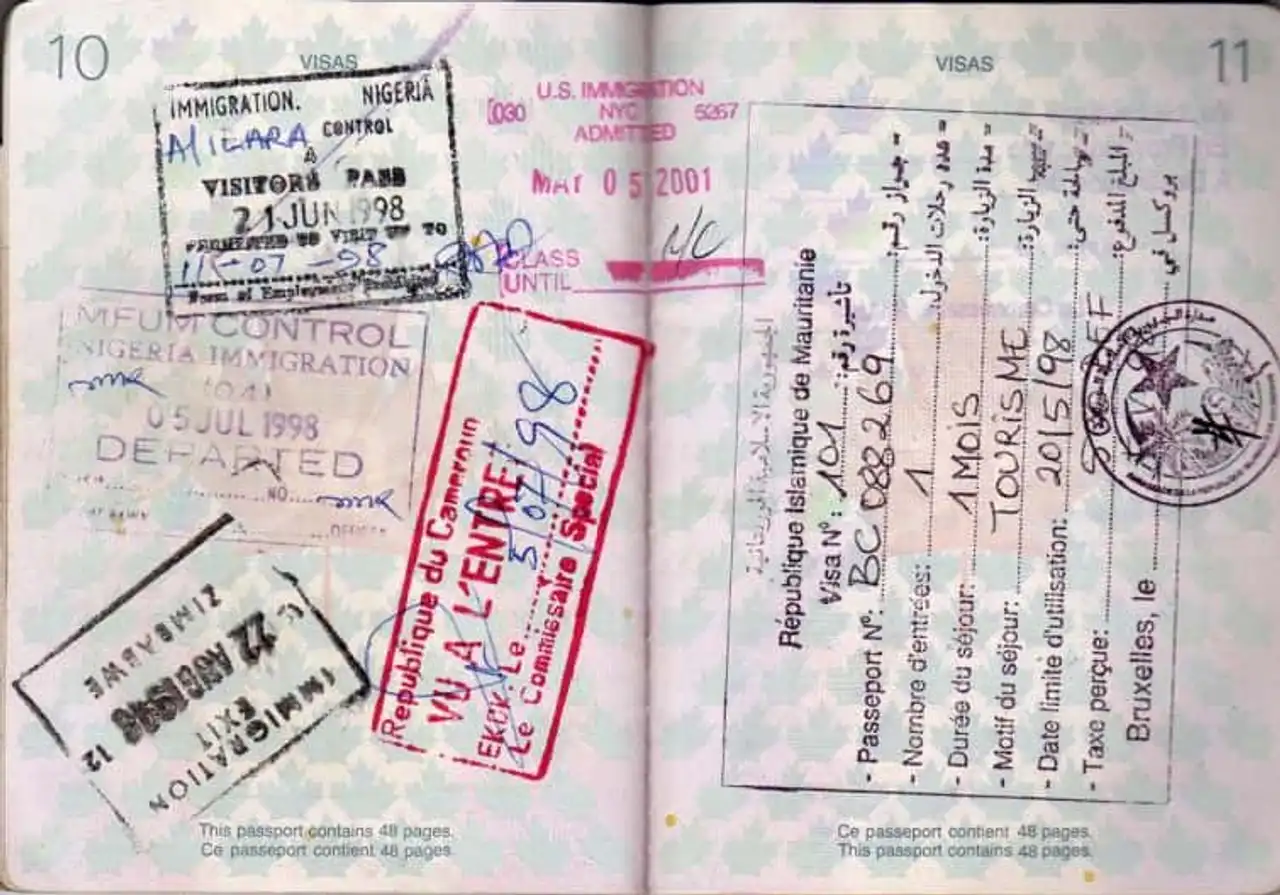 10
VISAS
IMMIGRATION. NIGERIA
CONTROL
A
VISITORS PASS
21 JUN 1998
PERMITTED TO VISIT UP TO
-07-98
MFUM CONTROL
NIGERIA IMMIGRATION
(04)
05 JUL 1998
DEPARTED
NO
U.S. IMMIGRATION
030 NYC 5267
ADMITTED
MAY 05 2001
CLASS
UNTIL
République du Cameroun
VU A L'ENTREE
EKOK, Le 5/07/98
Le Commissaire Special
IMMIGRATION
EXIT
22 AUG 1998
12
ZIMBABWE
This passport contains 48 pages.
Ce passeport contient 48 pages.
VISAS
11
الجمهورية الاسلامية الموريتانية
République Islamique de Mauritanie
Visa N°: 101 تأشيرة رقم:
- Passeport N°: BC 088269 - جواز رقم:
- Nombre d'entrées: 1 - عدد رحلات الدخول:
- Durée du séjour: 1 MOIS - مدة الزيارة:
- Motif du séjour: TOURISME الزيارة:
- Date limite d'utilisation: 20/5/98 - صالحة حتى:
- Taxe perçue: - المبلغ المدفوع:
Bruxelles, le بروكسل في
Ce passeport contient 48 pages.
This passport contains 48 pages.